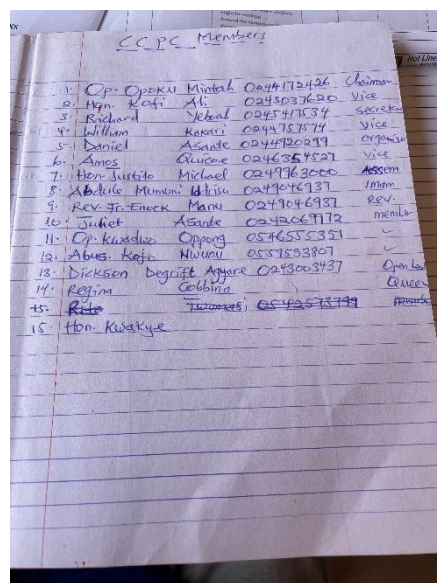 CCPC Members
1. Op. Opoku Mintah 0244172426 Chairman
2. Hon. Kofi Ali 0243037620 Vice
3. Richard Yeboah 0245417534 Secreta
4. William 0244757574 Vice
5. Daniel Asante 0244920299 organise
6. Amos 0246354527 Vice
7. Hon. Justito Michael 0249963000
8. Abdule Mumuni Idrisu 0249046937 Imam
9. Rev. Fr. Enock Manu 0249046937 Rev.
10. Juliet Asante 0242069172 member
11. Op. Kwadwo Oppong 0546555351
12. Kofo Nwunu 0559553807
13. Dickson Degrift Agyare 0243003437 Open
14. Regina Gobbina Queen
15. Rita 0542573799
15. Hon. Kwakye
Hot Line